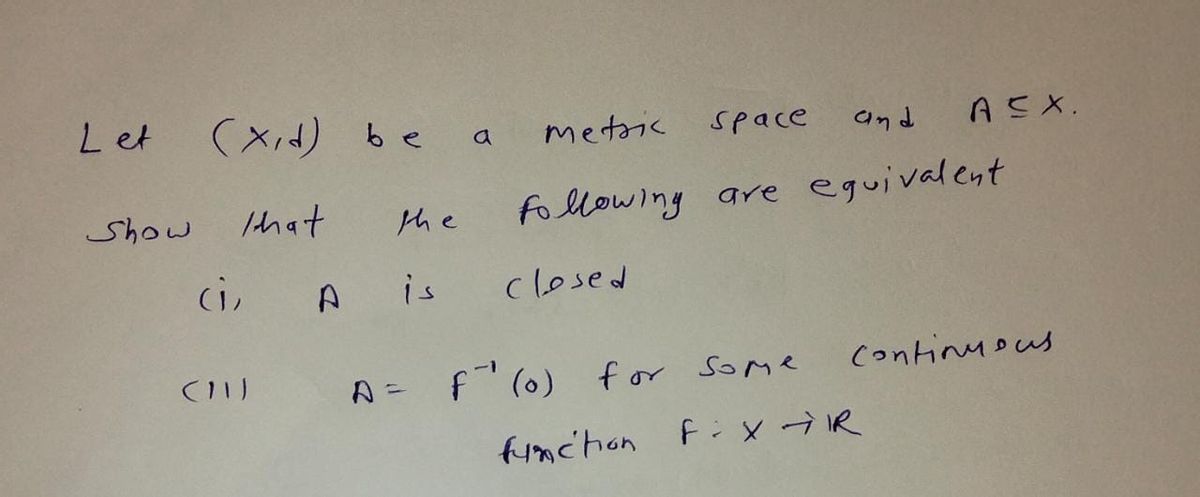 Let (X,d) be a metric space and A ⊆ X.
Show that the following are equivalent
(i) A is closed
(ii) A = f⁻¹(0) for some continuous
function f : X → ℝ